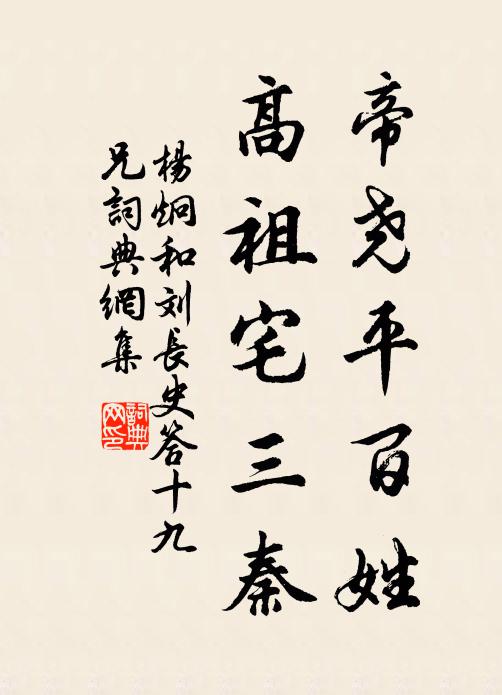 帝尧平百姓
高祖宅三秦
楊炯和刘長史答十九
兄詞典網集
詞典
网印